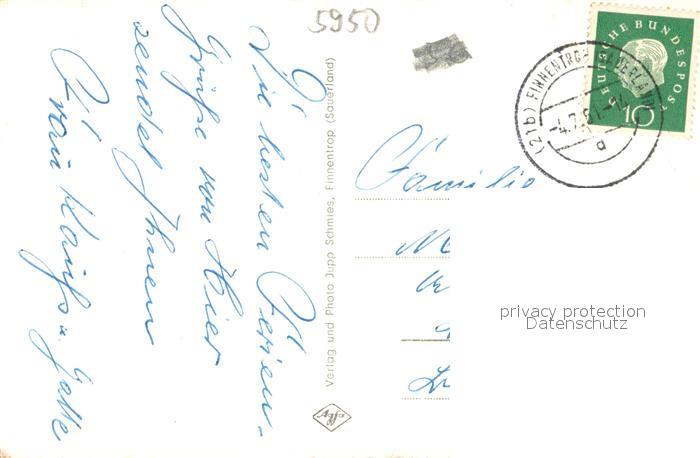 5950
Die besten Ferien-
Grüße von Hier
sendet Ihnen
Frau u. Gatte
Verlag und Photo Jupp Schmies, Finnentrop (Sauerland)
Agfa
Familie
DEUTSCHE BUNDESPOST
10
(21b) FINNENTROP (SAUERLAND)
-4.7.61-14
a
privacy protection
Datenschutz